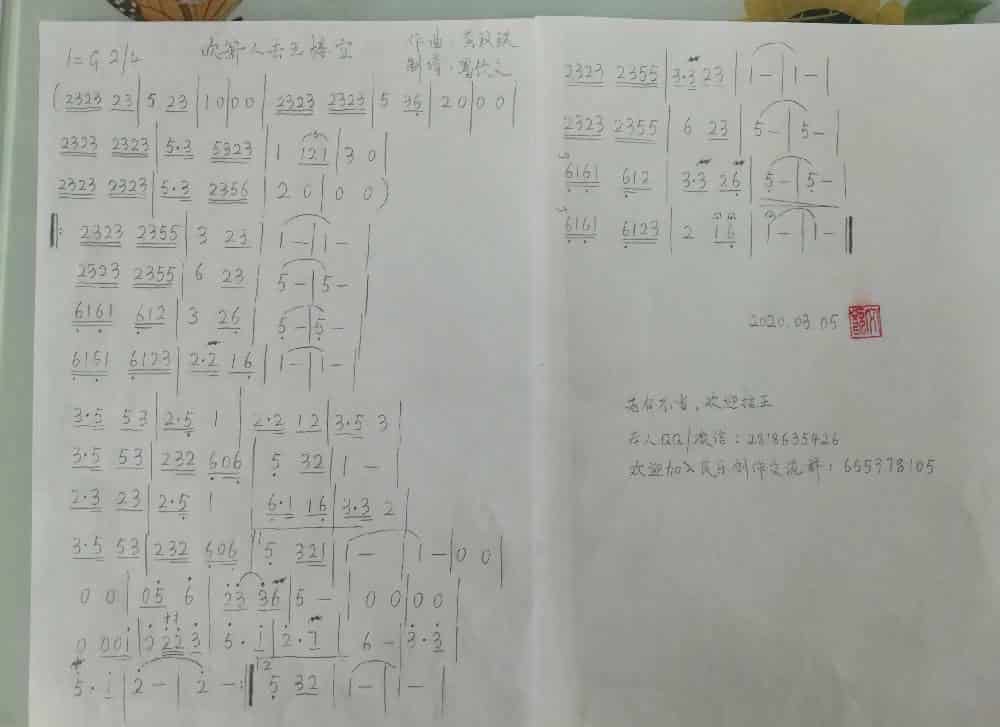 1=G 2/4
作曲:
制谱:
( 2323 23 | 5 23 | 1 0 | 0 0 | 2323 2323 | 5 35 | 2 0 | 0 0 |
2323 2323 | 5·3 5323 | 1 121 | 3 0 |
2323 2323 | 5·3 2356 | 2 0 | 0 0 )
‖: 2323 2355 | 3 23 | 1 — | 1 — |
2323 2355 | 6 23 | 5 — | 5 — |
6161 612 | 3 26 | 5 — | 5 — |
6161 6123 | 2·2 16 | 1 — | 1 — |
3·5 53 | 2·5 1 | 2·2 12 | 3·5 3 |
3·5 53 | 232 606 | 5 32 | 1 — |
2·3 23 | 2·5 1 | 6·1 16 | 3·3 2 |
3·5 53 | 232 606 | 5 321 | 1 — | 1 — | 0 0 |
0 0 | 05 6 | 23 36 | 5 — | 0 0 | 0 0 |
0 001 | 2 223 | 5·1 | 2·7 | 6 — | 3·3 |
5·1 | 2 — | 2 — :‖ 5 32 | 1 — | 1 — |
2323 2355 | 3·3 23 | 1 — | 1 — |
2323 2355 | 6 23 | 5 — | 5 — |
6161 612 | 3·3 26 | 5 — | 5 — |
6161 6123 | 2 16 | 1 — | 1 — ‖
2020.03.05
若有不当，欢迎指正
本人QQ/微信：2818635426
欢迎加入民乐创作交流群：655373105